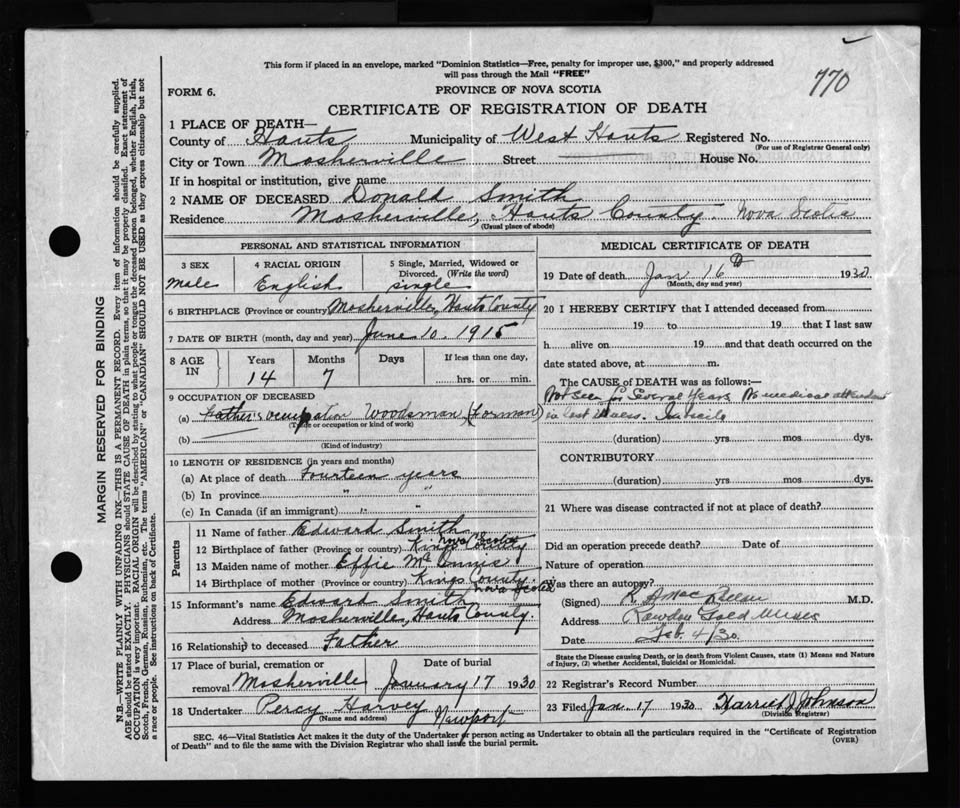 This form if placed in an envelope, marked "Dominion Statistics—Free, penalty for improper use, $300," and properly addressed
will pass through the Mail "FREE"
770
FORM 6.
PROVINCE OF NOVA SCOTIA
CERTIFICATE OF REGISTRATION OF DEATH
1 PLACE OF DEATH—
County of Hants Municipality of West Hants Registered No.
(For use of Registrar General only)
City or Town Mosherville Street House No.
If in hospital or institution, give name
2 NAME OF DECEASED Donald Smith
Residence Mosherville, Hants County Nova Scotia
(Usual place of abode)
PERSONAL AND STATISTICAL INFORMATION
3 SEX 4 RACIAL ORIGIN 5 Single, Married, Widowed or
Divorced. (Write the word)
Male English Single
6 BIRTHPLACE (Province or country) Mosherville, Hants County
7 DATE OF BIRTH (month, day and year) June 10, 1915
8 AGE IN Years Months Days If less than one day,
14 7 hrs. or min.
9 OCCUPATION OF DECEASED
(a) Father's occupation Woodsman (Forman)
(Trade or occupation or kind of work)
(b)
(Kind of industry)
10 LENGTH OF RESIDENCE (in years and months)
(a) At place of death Fourteen years
(b) In province " "
(c) In Canada (if an immigrant) " "
Parents
11 Name of father Edward Smith
Nova Scotia
12 Birthplace of father (Province or country) Kings County
13 Maiden name of mother Effie McInnis
14 Birthplace of mother (Province or country) Kings County
Nova Scotia
15 Informant's name Edward Smith
Address Mosherville, Hants County
16 Relationship to deceased Father
17 Place of burial, cremation or Date of burial
removal Mosherville January 17 1930
18 Undertaker Percy Harvey Newport
(Name and address)
MEDICAL CERTIFICATE OF DEATH
19 Date of death Jan 16th 1930
(Month, day and year)
20 I HEREBY CERTIFY that I attended deceased from
19 to 19 that I last saw
h alive on 19 and that death occurred on the
date stated above, at m.
The CAUSE OF DEATH was as follows:—
Not Seen for Several Years No medical attendant
in last illness.
(duration) yrs mos dys.
CONTRIBUTORY
(duration) yrs mos dys.
21 Where was disease contracted if not at place of death?
Did an operation precede death? Date of
Nature of operation
Was there an autopsy?
(Signed) M.D.
Address Rawdon Gold Mines
Date Feb. 4/30.
State the Disease causing Death, or in death from Violent Causes, state (1) Means and Nature
of Injury, (2) whether Accidental, Suicidal or Homicidal.
22 Registrar's Record Number
23 Filed Jan. 17 1930 Harried J Johnson
(Division Registrar)
SEC. 46—Vital Statistics Act makes it the duty of the Undertaker or person acting as Undertaker to obtain all the particulars required in the "Certificate of Registration
of Death" and to file the same with the Division Registrar who shall issue the burial permit.
(OVER)
MARGIN RESERVED FOR BINDING
N.B.—WRITE PLAINLY WITH UNFADING INK—THIS IS A PERMANENT RECORD. Every item of information should be carefully supplied.
AGE should be stated EXACTLY. PHYSICIANS should STATE CAUSE OF DEATH in plain terms, so that it may be properly classified. Exact statement of
OCCUPATION is very important. RACIAL ORIGIN will be described by stating to what people or tongue the deceased person belonged, whether English, Irish,
Scotch, French, German, Russian, Ruthenian, etc. The terms "AMERICAN" or "CANADIAN" SHOULD NOT BE USED as they express citizenship but not
a race or people. See instructions on back of Certificate.